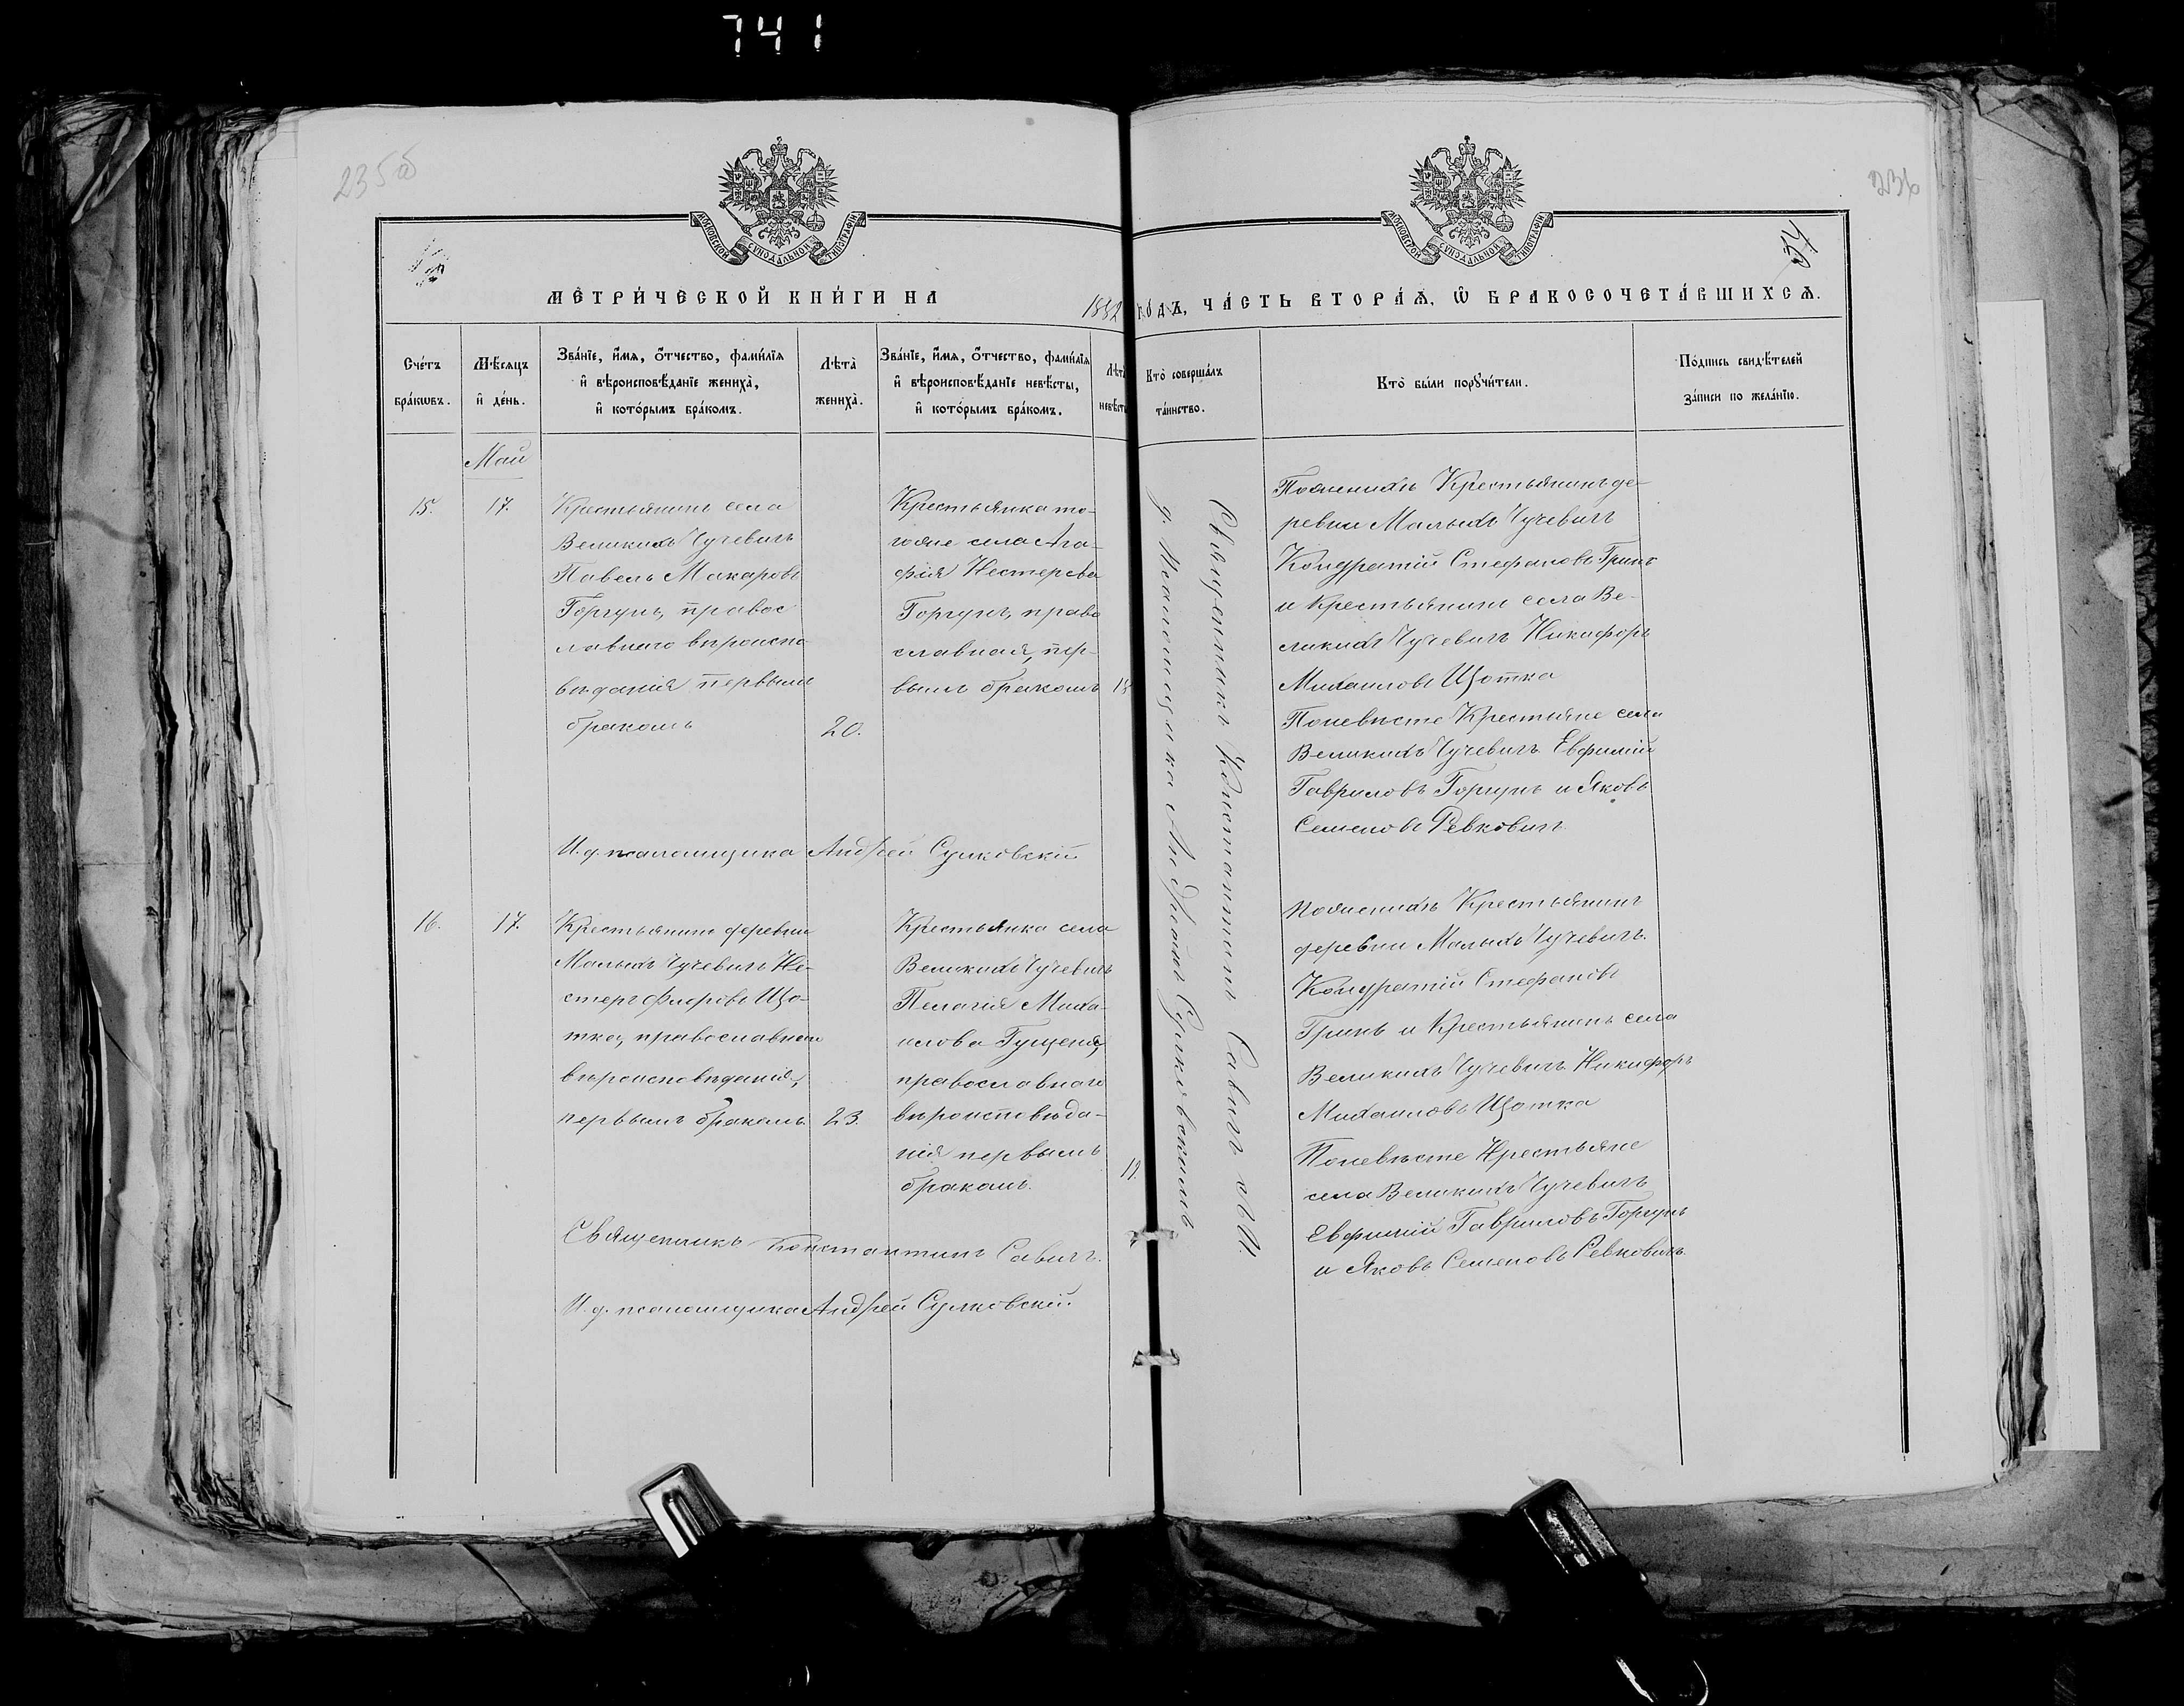 741
235об
236
МОСКОВСКОЙ СУНОДАЛЬНОЙ ТИПОГРАФІИ
МОСКОВСКОЙ СУНОДАЛЬНОЙ ТИПОГРАФІИ
МЕТРИ́ЧЕСКОЙ КНИ́ГИ НА 1882 ГО́ДЪ, ЧА́СТЬ ВТОРА́Ѧ, Ѡ БРАКОСОЧЕТА́ВШИХСѦ.
Сче́тъ бра́кѡвъ.
Мѣ́сѧцъ и҆ де́нь.
Зва́нїе, и҆́мѧ, ѻ҆́тчество, фами́лїѧ и҆ вѣроисповѣ́данїе жениха̀, и҆ кото́рымъ бра́комъ.
Лѣта̀ жениха̀.
Зва́нїе, и҆́мѧ, ѻ҆́тчество, фами́лїѧ и҆ вѣроисповѣ́данїе невѣ́сты, и҆ кото́рымъ бра́комъ.
Лѣта̀ невѣ́сты
Кто̀ соверша́лъ та́инство.
Кто̀ бы́ли порꙋчи́тели.
По́дпись свидѣ́телей за́писи по жела́нїю.
Май
15.
17.
Крестьянинъ села
Великихъ Чучевичъ
Павелъ Макаровъ
Горгунъ, правос
лавнаго вѣроиспо
вѣданія первымъ
бракомъ
20.
Крестьянка то-
гоже села Ага-
фія Нестерова
Горгунъ, право
славная, пер-
вымъ бракомъ
18
Священникъ Константинъ Савичъ съ И.
д. псаломщика Андреемъ Сулковскимъ
Поженихѣ Крестьянинъ де-
ревни Малыхъ Чучевичъ
Кондратій Стефановъ Гринь
и Крестьянинъ села Ве-
ликихъ Чучевичъ Никифоръ
Михаиловъ Щотка
Поневѣсте Крестьяне села
Великихъ Чучевичъ Евфимій
Гавриловъ Горгунъ и Яковъ
Семеновъ Ревковичъ
И. д. псаломщика Андрей Сулковскій
16.
17.
Крестьянинъ деревни
Малыхъ Чучевичъ Не-
стеръ Флоровъ Що-
тка, православнаго
вѣроисповѣданія,
первымъ бракомъ.
23.
Крестьянка села
Великихъ Чучевичъ
Пелагія Миха-
илова Гущеня,
православнаго
вѣроисповѣда-
нія первымъ
бракомъ.
19.
Поженихѣ Крестьянинъ
деревни Малыхъ Чучевичъ
Кондратій Стефановъ
Гринь и Крестьянинъ села
Великихъ Чучевичъ Никифоръ
Михаиловъ Щотка
Поневѣсте Крестьяне
села Великихъ Чучевичъ
Евфимій Гавриловъ Горгунъ
и Яковъ Семеновъ Ревковичъ
Священникъ Константинъ Савичъ.
И. д. псаломщика Андрей Сулковскій.